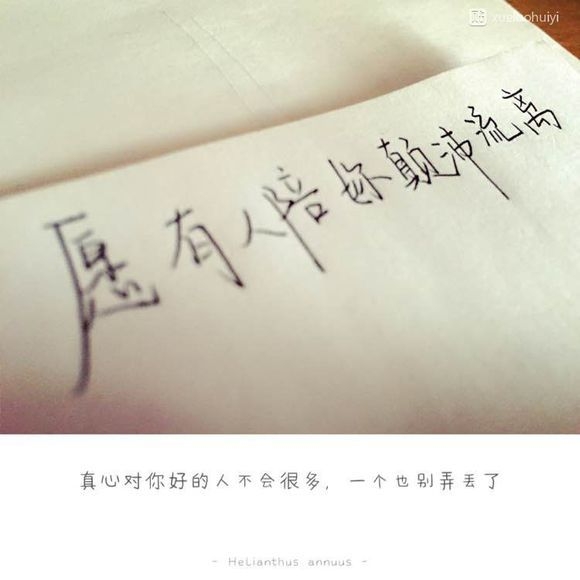 xuelaohuiyi
愿有人陪你颠沛流离
真心对你好的人不会很多，一个也别弄丢了
- HeLianthus annuus -